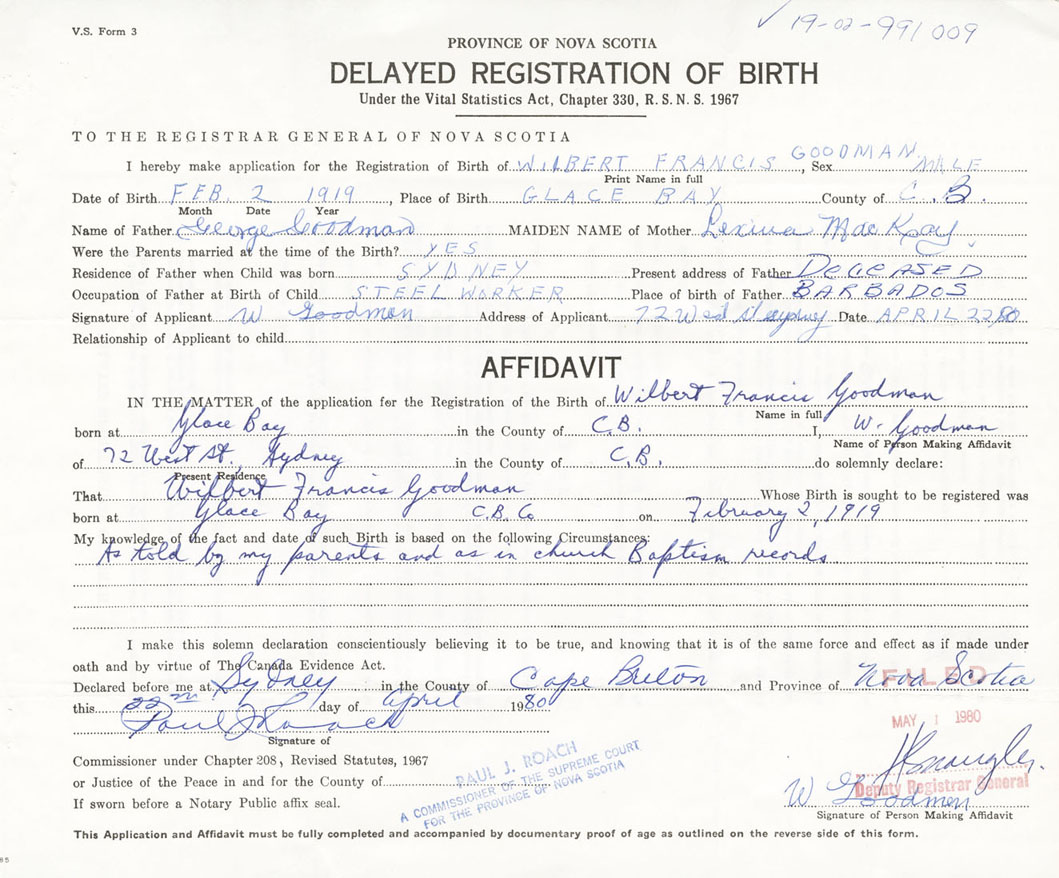 V.S. Form 3
✓ 19-02-991009
PROVINCE OF NOVA SCOTIA
DELAYED REGISTRATION OF BIRTH
Under the Vital Statistics Act, Chapter 330, R.S.N.S. 1967
TO THE REGISTRAR GENERAL OF NOVA SCOTIA
I hereby make application for the Registration of Birth of WILBERT FRANCIS GOODMAN, Sex MALE
Print Name in full
Date of Birth FEB. 2 1919, Place of Birth GLACE BAY County of C.B.
Month Date Year
Name of Father George Goodman MAIDEN NAME of Mother Lexina MacKay.
Were the Parents married at the time of the Birth? YES
Residence of Father when Child was born SYDNEY Present address of Father DECEASED
Occupation of Father at Birth of Child STEEL WORKER Place of birth of Father BARBADOS
Signature of Applicant W Goodman Address of Applicant 72 West St Sydney Date APRIL 22 80
Relationship of Applicant to child
AFFIDAVIT
IN THE MATTER of the application for the Registration of the Birth of Wilbert Francis Goodman
Name in full
born at Glace Bay in the County of C.B. I, W. Goodman
Name of Person Making Affidavit
of 72 West St., Sydney in the County of C.B. do solemnly declare:
Present Residence
That Wilbert Francis Goodman Whose Birth is sought to be registered was
born at Glace Bay C.B. Co on February 2, 1919
My knowledge of the fact and date of such Birth is based on the following Circumstances:
As told by my parents and as in church Baptism records
I make this solemn declaration conscientiously believing it to be true, and knowing that it is of the same force and effect as if made under
oath and by virtue of The Canada Evidence Act.
Declared before me at Sydney in the County of Cape Breton and Province of Nova Scotia
FILED
this 22nd day of April 1980
MAY 1 1980
Paul J Roach
Signature of
Commissioner under Chapter 208, Revised Statutes, 1967
or Justice of the Peace in and for the County of
If sworn before a Notary Public affix seal.
PAUL J. ROACH
A COMMISSIONER OF THE SUPREME COURT
FOR THE PROVINCE OF NOVA SCOTIA
Deputy Registrar General
W Goodman
Signature of Person Making Affidavit
This Application and Affidavit must be fully completed and accompanied by documentary proof of age as outlined on the reverse side of this form.